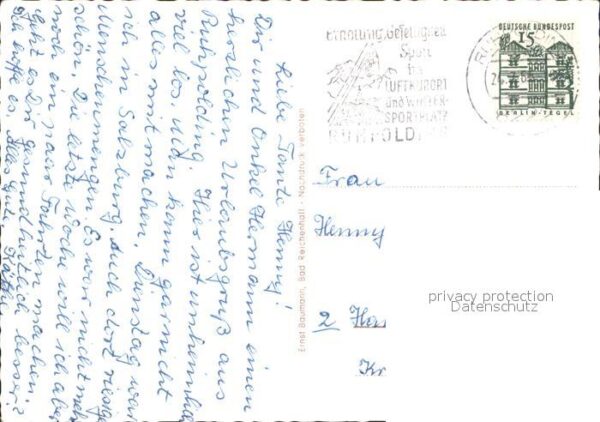 Liebe Tante Henny!
Dir und Onkel Hermann einen
herzlichen Urlaubsgruß aus
Ruhpolding. Hier ist unheimlich
viel los. Man kann garnicht
alles mitmachen. Dienstag war
ich in Salzburg. Auch dort riesige
Menschenmengen. Es war nicht mehr
schön. Die letzte Woche will ich aber
noch ein paar Fahrten machen.
Geht es Dir gesundheitlich besser?
Ich hoffe es. Alles Gute
Ernst Baumann, Bad Reichenhall - Nachdruck verboten
ERHOLUNG, Geselligkeit
Sport
im
LUFTKURORT
und WINTER-
SPORTPLATZ
RUHPOLDING
DEUTSCHE BUNDESPOST
15
BERLIN-TEGEL
Frau
Henny
2 Ha
Kr
privacy protection
Datenschutz